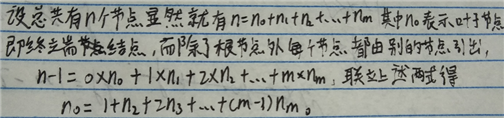 设总共有n个节点显然就有n=n₀+n₁+n₂+…+nₘ 其中n₀表示叶子节点
即终端结点,而除了根节点外每个节点都由别的节点引出,
n-1=0×n₀+1×n₁+2×n₂+…+m×nₘ,联立上述两式得
n₀=1+n₂+2n₃+…+(m-1)nₘ。